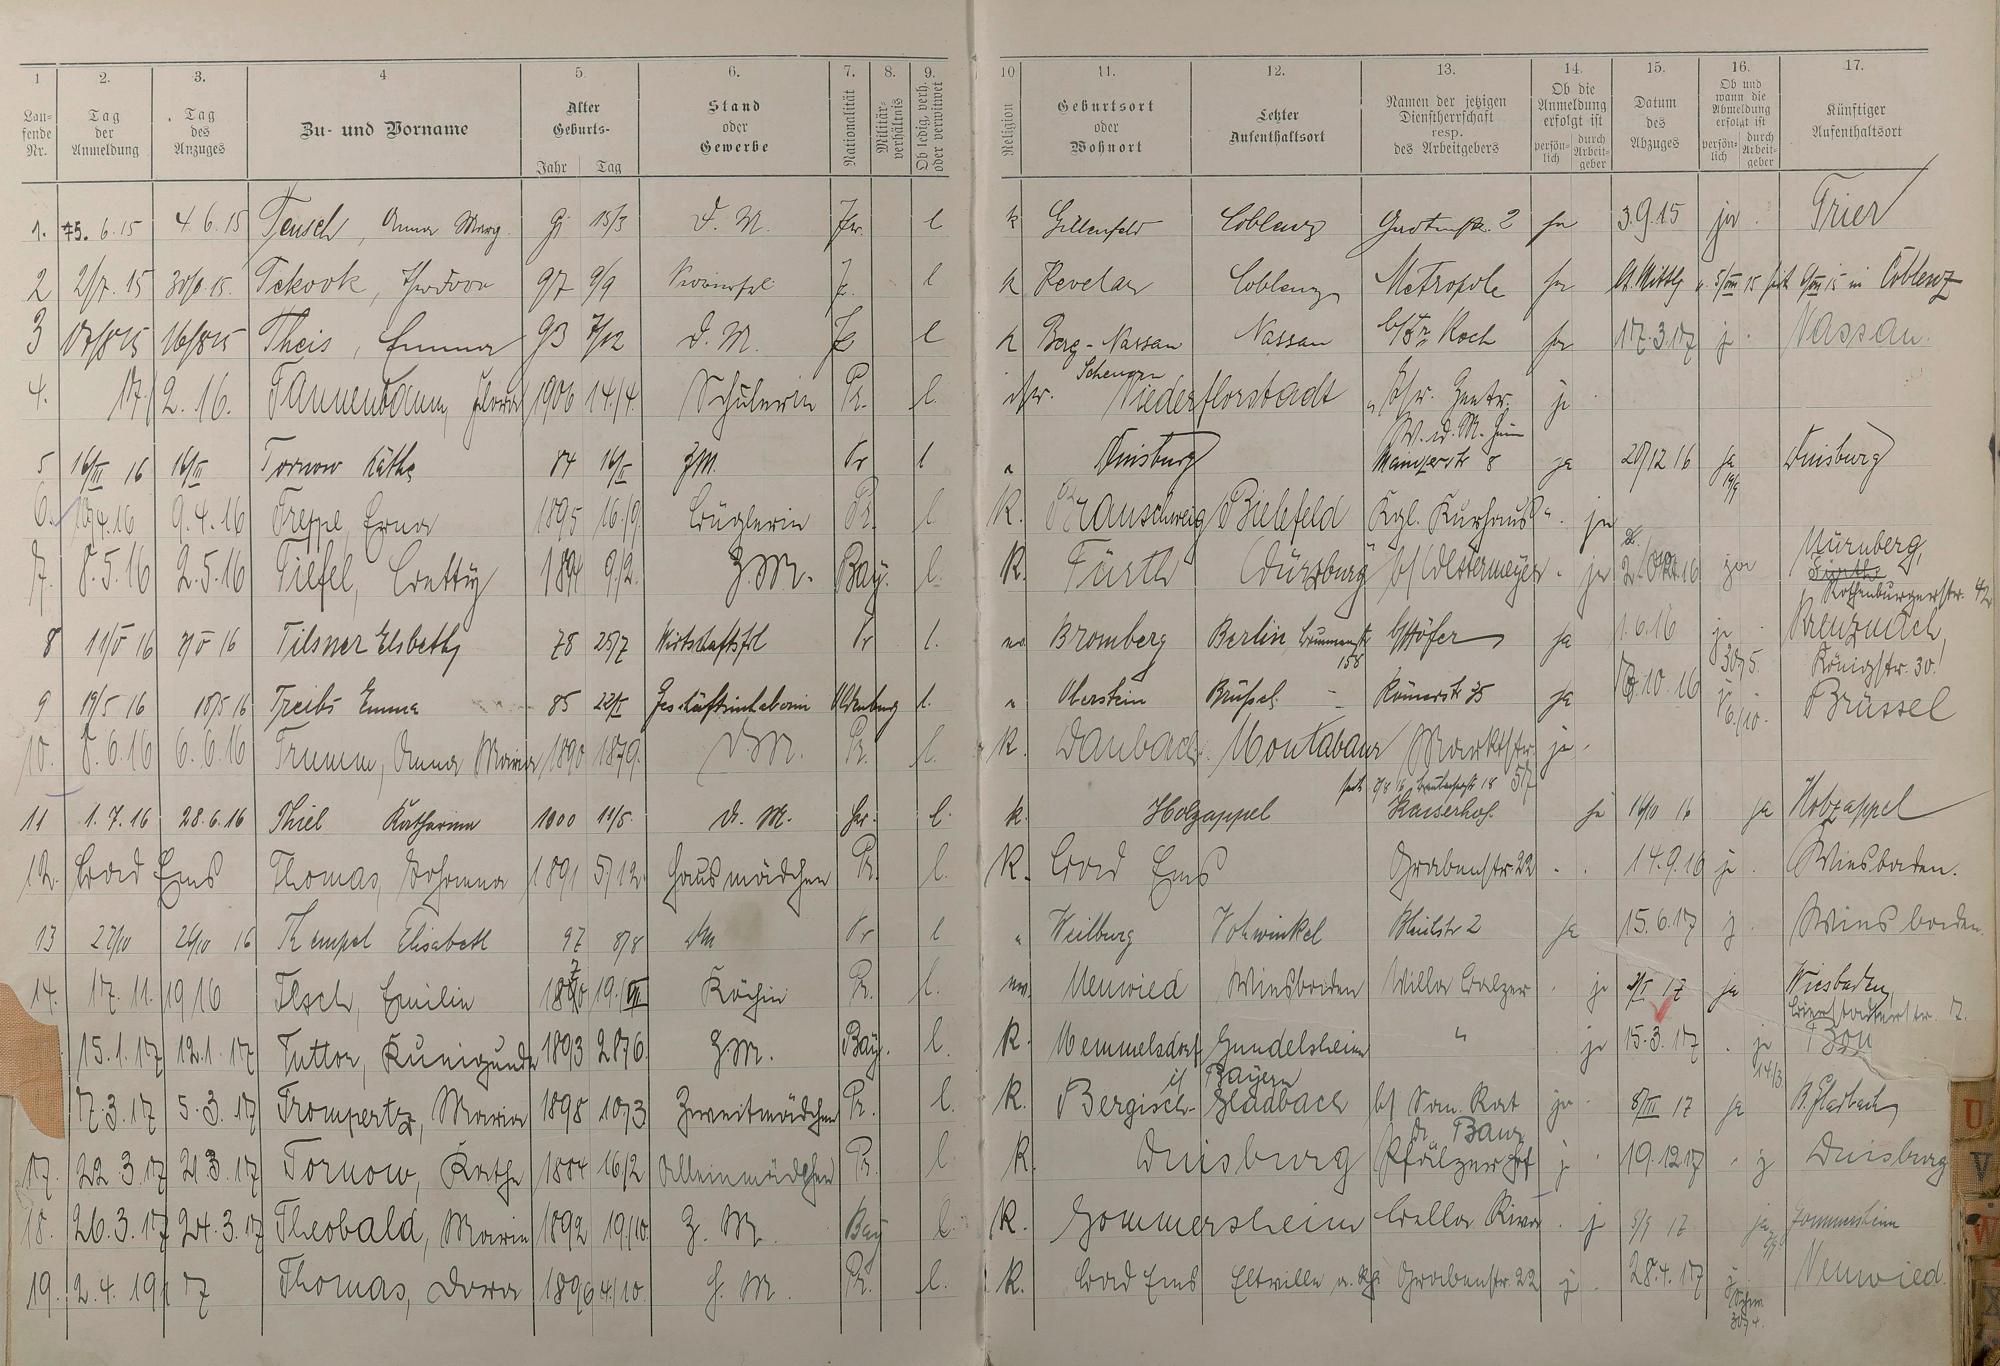 1 2. 3. 4 5. 6. 7. 8. 9. 10 11. 12. 13. 14. 15. 16. 17.
Lau-
fende
Nr.
Tag
der
Anmeldung
Tag
des
Anzuges
Zu- und Vorname
Alter
Geburts-
Jahr Tag
Stand
oder
Gewerbe
Nationalität
Militär-
verhältnis
Ob ledig, verh.
oder verwitwet
Religion
Geburtsort
oder
Wohnort
Letzter
Aufenthaltsort
Namen der jetzigen
Dienstherrschaft
resp.
des Arbeitgebers
Ob die
Anmeldung
erfolgt ist
persön-
lich
durch
Arbeit-
geber
Datum
des
Abzuges
Ob und
wann die
Abmeldung
erfolgt ist
persön-
lich
durch
Arbeit-
geber
Künftiger
Aufenthaltsort
1. 6.15 4.6.15 Teusch, Anna Marg. 15/3 D. M. l k Gillenfeld Coblenz 2 ja 3.9.15 ja Trier
2 2/7. 15 Tekook, Theodor 97 9/9 l k Kevelaer Coblenz Metropole ja in Coblenz
3 17/8 15 16/8 15 Theis, Emma 93 7/12 D. M. l k Berg-Nassau Nassau Koch ja 17.3.17 j Nassau.
Scheuern
4. 17./2. 16. Tannenbaum, Flora 1906 14./4. Schülerin Pr. l. isr. Niederflorstadt Isr. ja
5 16/III 16 16/III Tornow Käthe 84 16/II ZM. Pr l " Duisburg Mainzerstr 8 ja 20/12 16 ja 19/9 Duisburg
6. 10.4.16 9.4.16 Treppe, Erna 1895 16./9 Büglerin Pr. l. K. Braunschweig Bielefeld Kgl. Kurhaus ja
7. 8.5.16 2.5.16 Tiefel, Bettty 1894 9/2. Z.M. Bay. l. K. Fürth Würzburg b/ Westermeyer ja 2. Okt. 16 ja Nürnberg,
Fürth
Rothenburgerstr. 42
8 11/V 16 9/V 16 Tilsner Elsbeth 78 25/7 Wirtschaftsfrl Pr l. ev. Bromberg Berlin, Brunnenstr 158 b/Höfer ja 1.6.16 ja 30/5. Kreuznach,
Königstr. 30.
9 19/5 16 18/5 16 Treibs Emma 85 22/I Geschäftsinhaberin Oldenburg l. " Oberstein Brüssel - Römerstr 75 ja .10.16 6/10. Brüssel
10. 8.6.16 6.6.16 Trumm, Anna Maria 1890 18/9. D.M. Pr. l. K. Daubach Montabaur Marktstr. 57 ja
11 1.7.16 28.6.16 Thiel Katharina 11/5. D. M. Pr. l. k. Holzappel Kaiserhof. ja 16/10 16 ja Holzappel
12. Bad Ems Thomas, Johanna 1891 5/12. Hausmädchen Pr. l. K. Bad Ems Grabenstr. 22 14.9.16 ja Wiesbaden.
13 27/10 26/10 16 Th empel Elisabeth 97 8/8 DM Pr l " Weilburg Vohwinkel 2 ja 15.6.17 j. Wiesbaden.
14. 17.11.1916 Tesch, Emilie 19./VII Köchin Pr. l. ev. Neuwied Wiesbaden Villa Balzer ja 2/I 17 ja Wiesbaden,
Bierstadterstr. 17.
15.1.17 12.1.17 Tuttor, Kunigunde 1893 28/6. Z.M. Bay. l. K. Memmelsdorf Gundelsheim " ja 15.3.17 ja 14/3
i/ Bayern
7.3.17 5.3.17 Trompertz, Maria 1898 10/3 Zweitmädchen Pr. l. K. Bergisch-Gladbach b/ San. Rat ja 8/III 17 ja B. Gladbach
Dr. Banz
17. 22.3.17 21.3.17 Tornow, Käthe 1884 16/2 Alleinmädchen Pr. l. K. Duisburg Pfälzer Hof j 19.12 17 j Duisburg
18. 26.3.17 24.3.17 Theobald, Marie 1892 19./10. Z. M. Bay l. K. Gommersheim Bella Riva j 5/9 17 ja Gommersheim
19. 2.4.1917 Thomas, Dora 1896 4/10. H. M. Pr. l. K. Bad Ems Eltville a. Rh. Grabenstr. 22 j. 28.4.17 30/4. Neuwied.
U
V
W
X